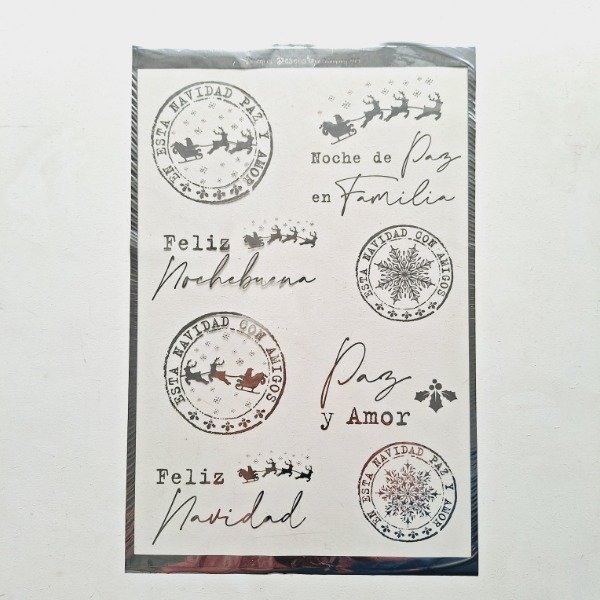 EN ESTA NAVIDAD PAZ Y AMOR
Noche de Paz
en Familia
Feliz
Nochebuena
ESTA NAVIDAD CON AMIGOS
ESTA NAVIDAD CON AMIGOS
Paz
y Amor
Feliz
Navidad
EN ESTA NAVIDAD PAZ Y AMOR